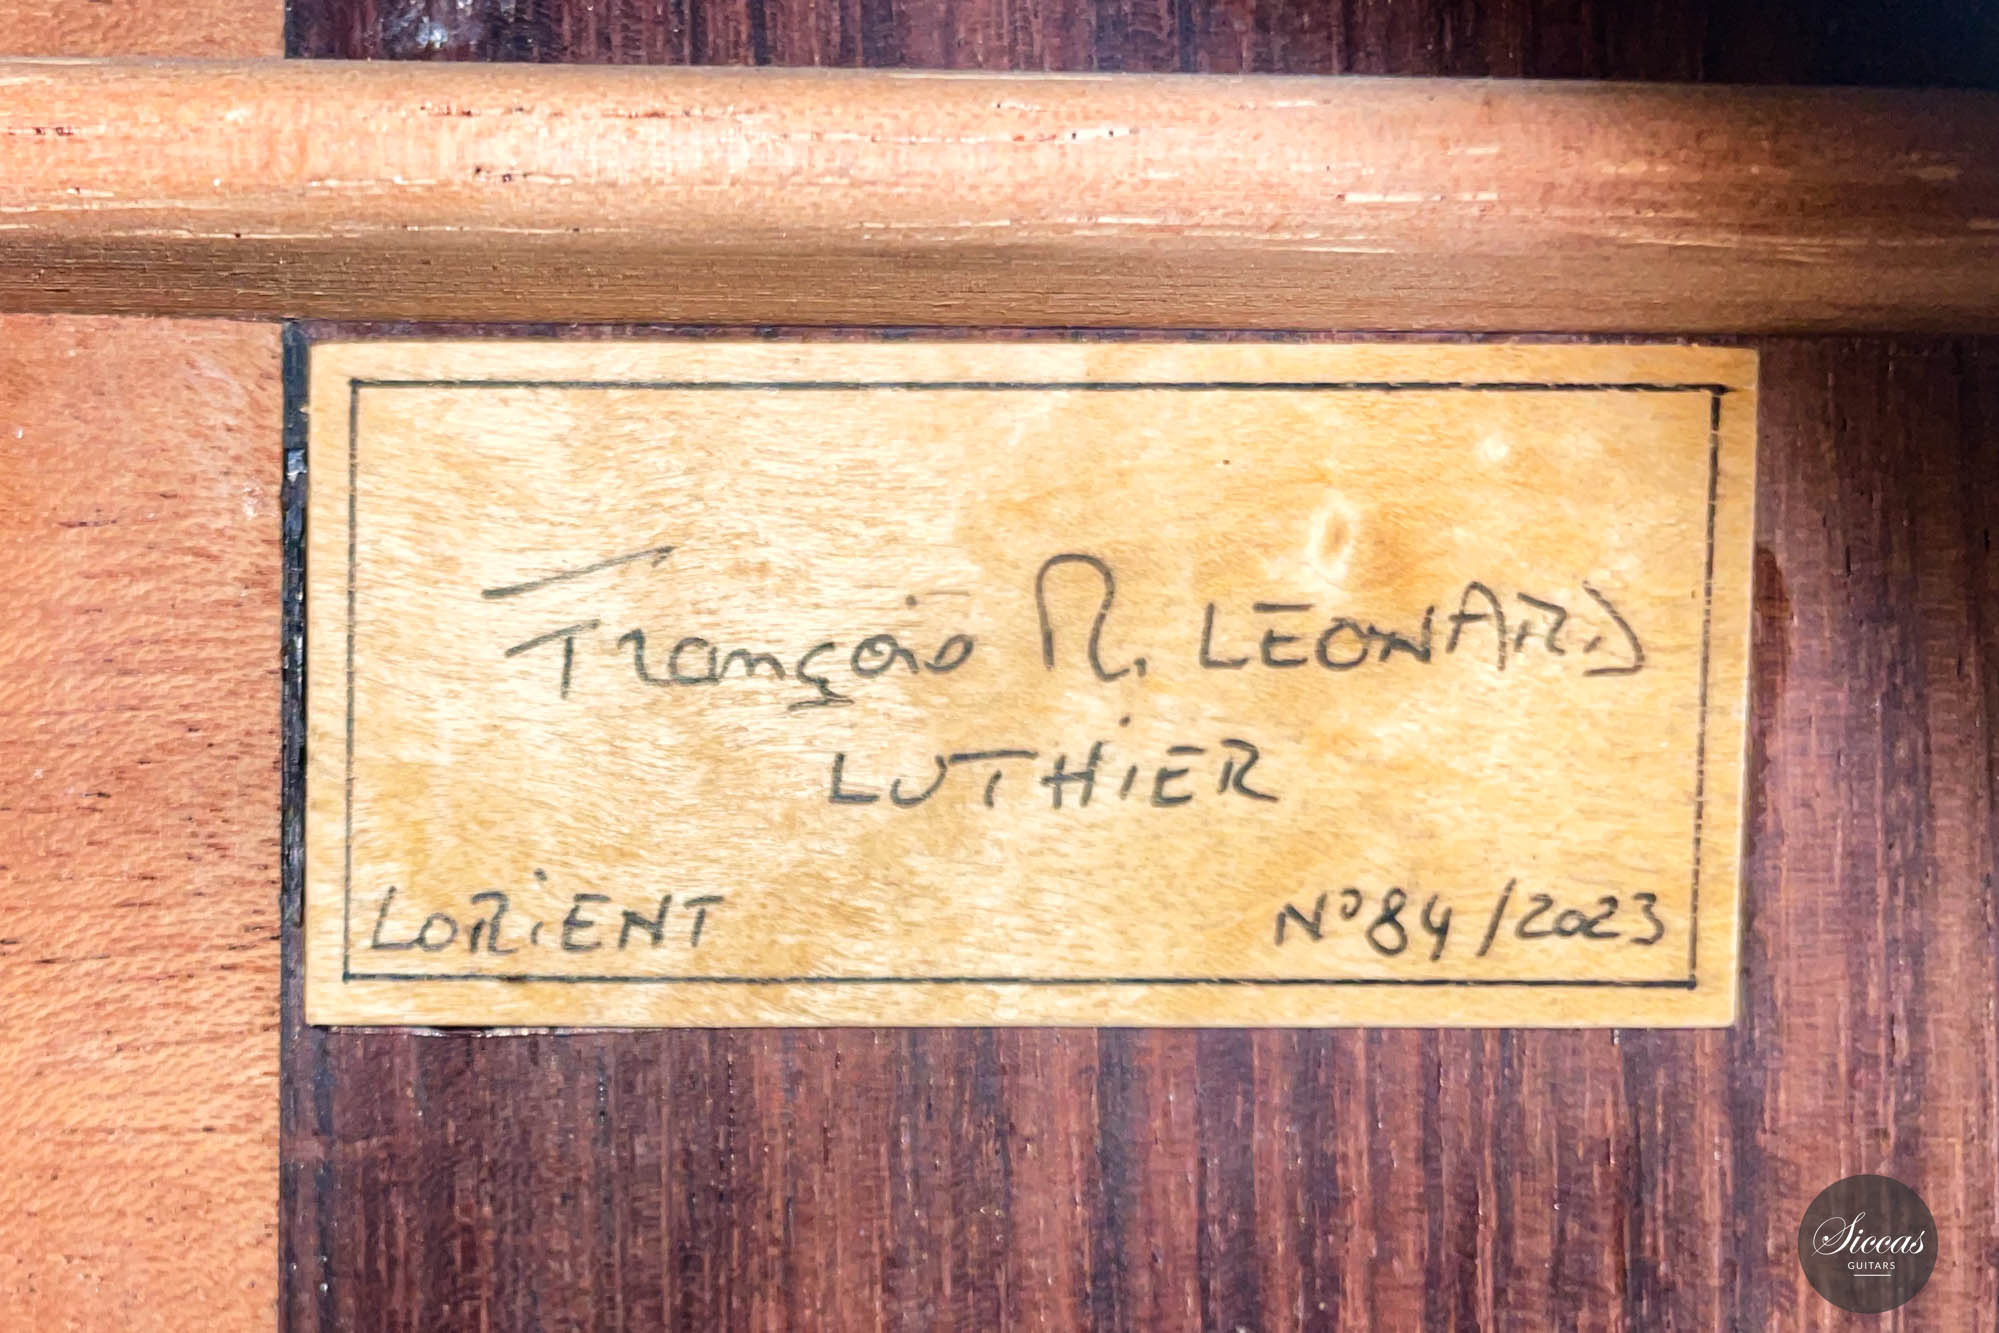 François R. LEONARD
LUTHIER
LORiENT
N° 84 / 2023
Siccas
GUITARS